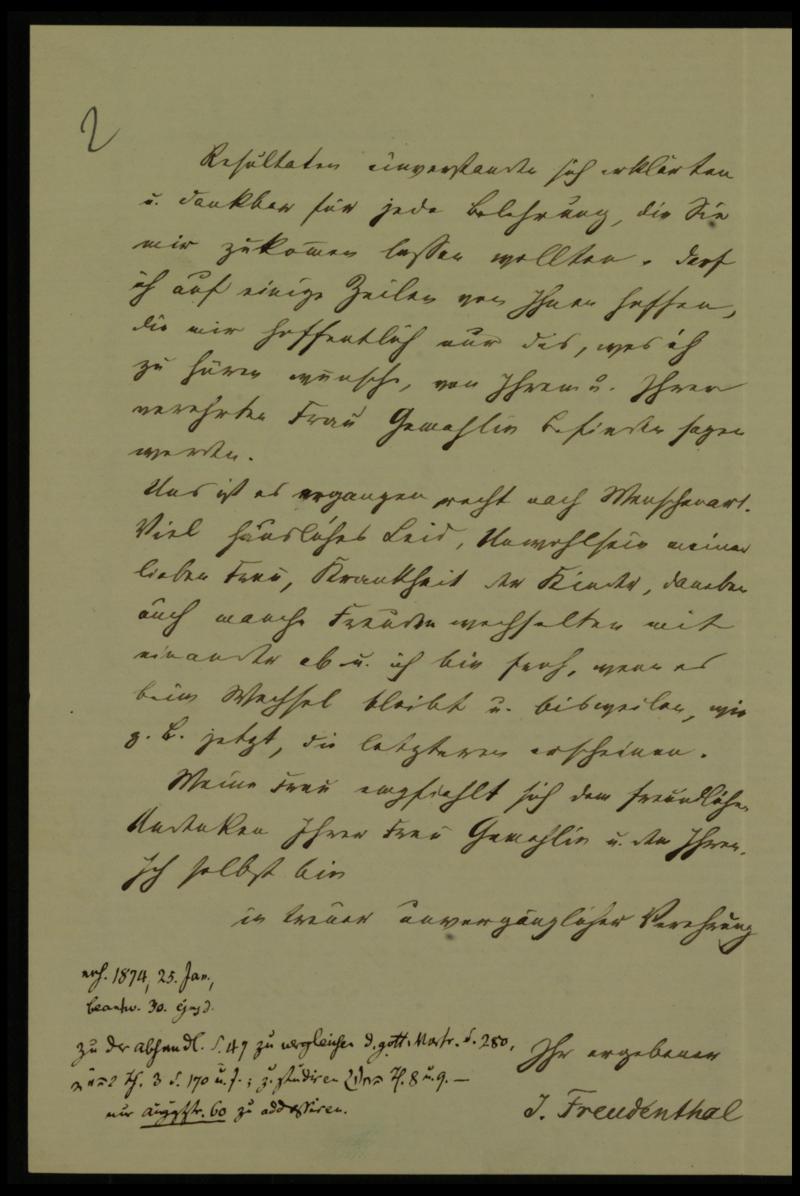 2
Resultaten einverstanden sich erklärten
u. dankbar für jede Belehrung, die Sie
mir zukommen lassen wollten. Darf
ich auf einige Zeilen von Ihnen hoffen,
die mir hoffentlich nur das, was ich
zu hören wünsche, von Ihrem u. Ihrer
verehrten Frau Gemahlin Befinden sagen
werden.
Uns ist es ergangen recht nach Menschenart.
Viel häusliches Leid, Unwohlsein meiner
lieben Frau, Krankheit der Kinder, daneben
auch manche Freuden wechselten mit
einander ab u. ich bin froh, wenn es
beim Wechsel bleibt u. bisweilen, wie
z. B. jetzt, die letzteren erscheinen.
Meine Frau empfiehlt sich dem freundlichen
Andenken Ihrer Frau Gemahlin u. dem Ihren.
Ich selbst bin
in treuer unvergänglicher Verehrung
erh. 1874, 25. Jan.,
beantw. 30. ejusd.
zu der Abhandl. S. 47 zu vergleichen d. gott. S. 280,
Th. 3 S. 170 u. f.; z. studiren Th. 8 u. 9. —
nur Auguststr. 60 zu addressiren.
Ihr ergebener
J. Freudenthal